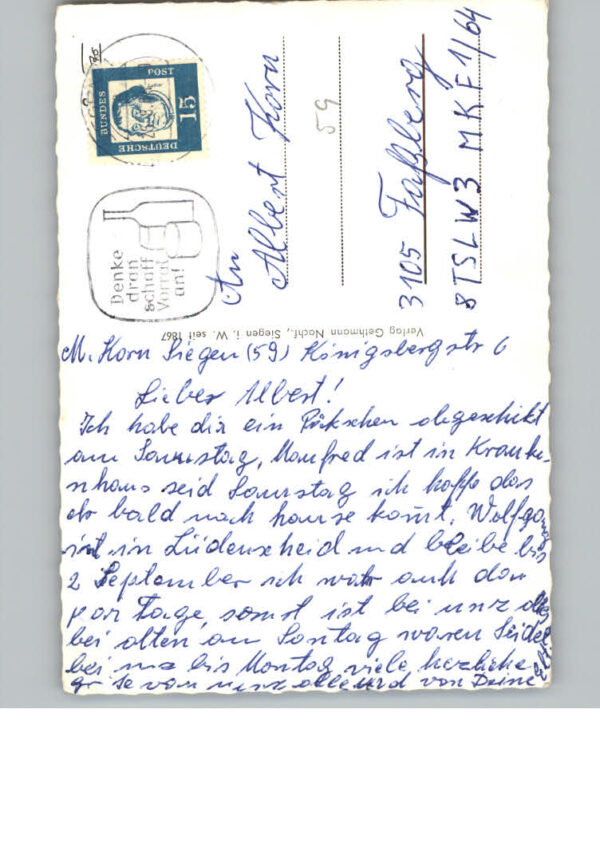 DEUTSCHE
BUNDES
POST
15
Denke
dran
schaff
Vorrat
an!
An
Albert Korn
59
3105 Faßberg
8TSLW3 MKF1/64
Verlag Gethmann Nachf., Siegen i. W. seit 1867
M. Korn Siegen (59) Königsbergstr 6
Lieber Albert!
Ich habe dir ein Päkschen abgeschikt
am Samstag, Manfred ist in Kranke-
nhaus seid Samstag ich hoffe das
er bald nach hause komt, Wolfgang
ist in Lüdenscheid und bleibe bis
2 September ich war auch dan
par Tage, sonst ist bei unz alles
bei alten am Sontag waren Seidel
bei uns bis Montag viele herzliche
von unz alle und von Deine